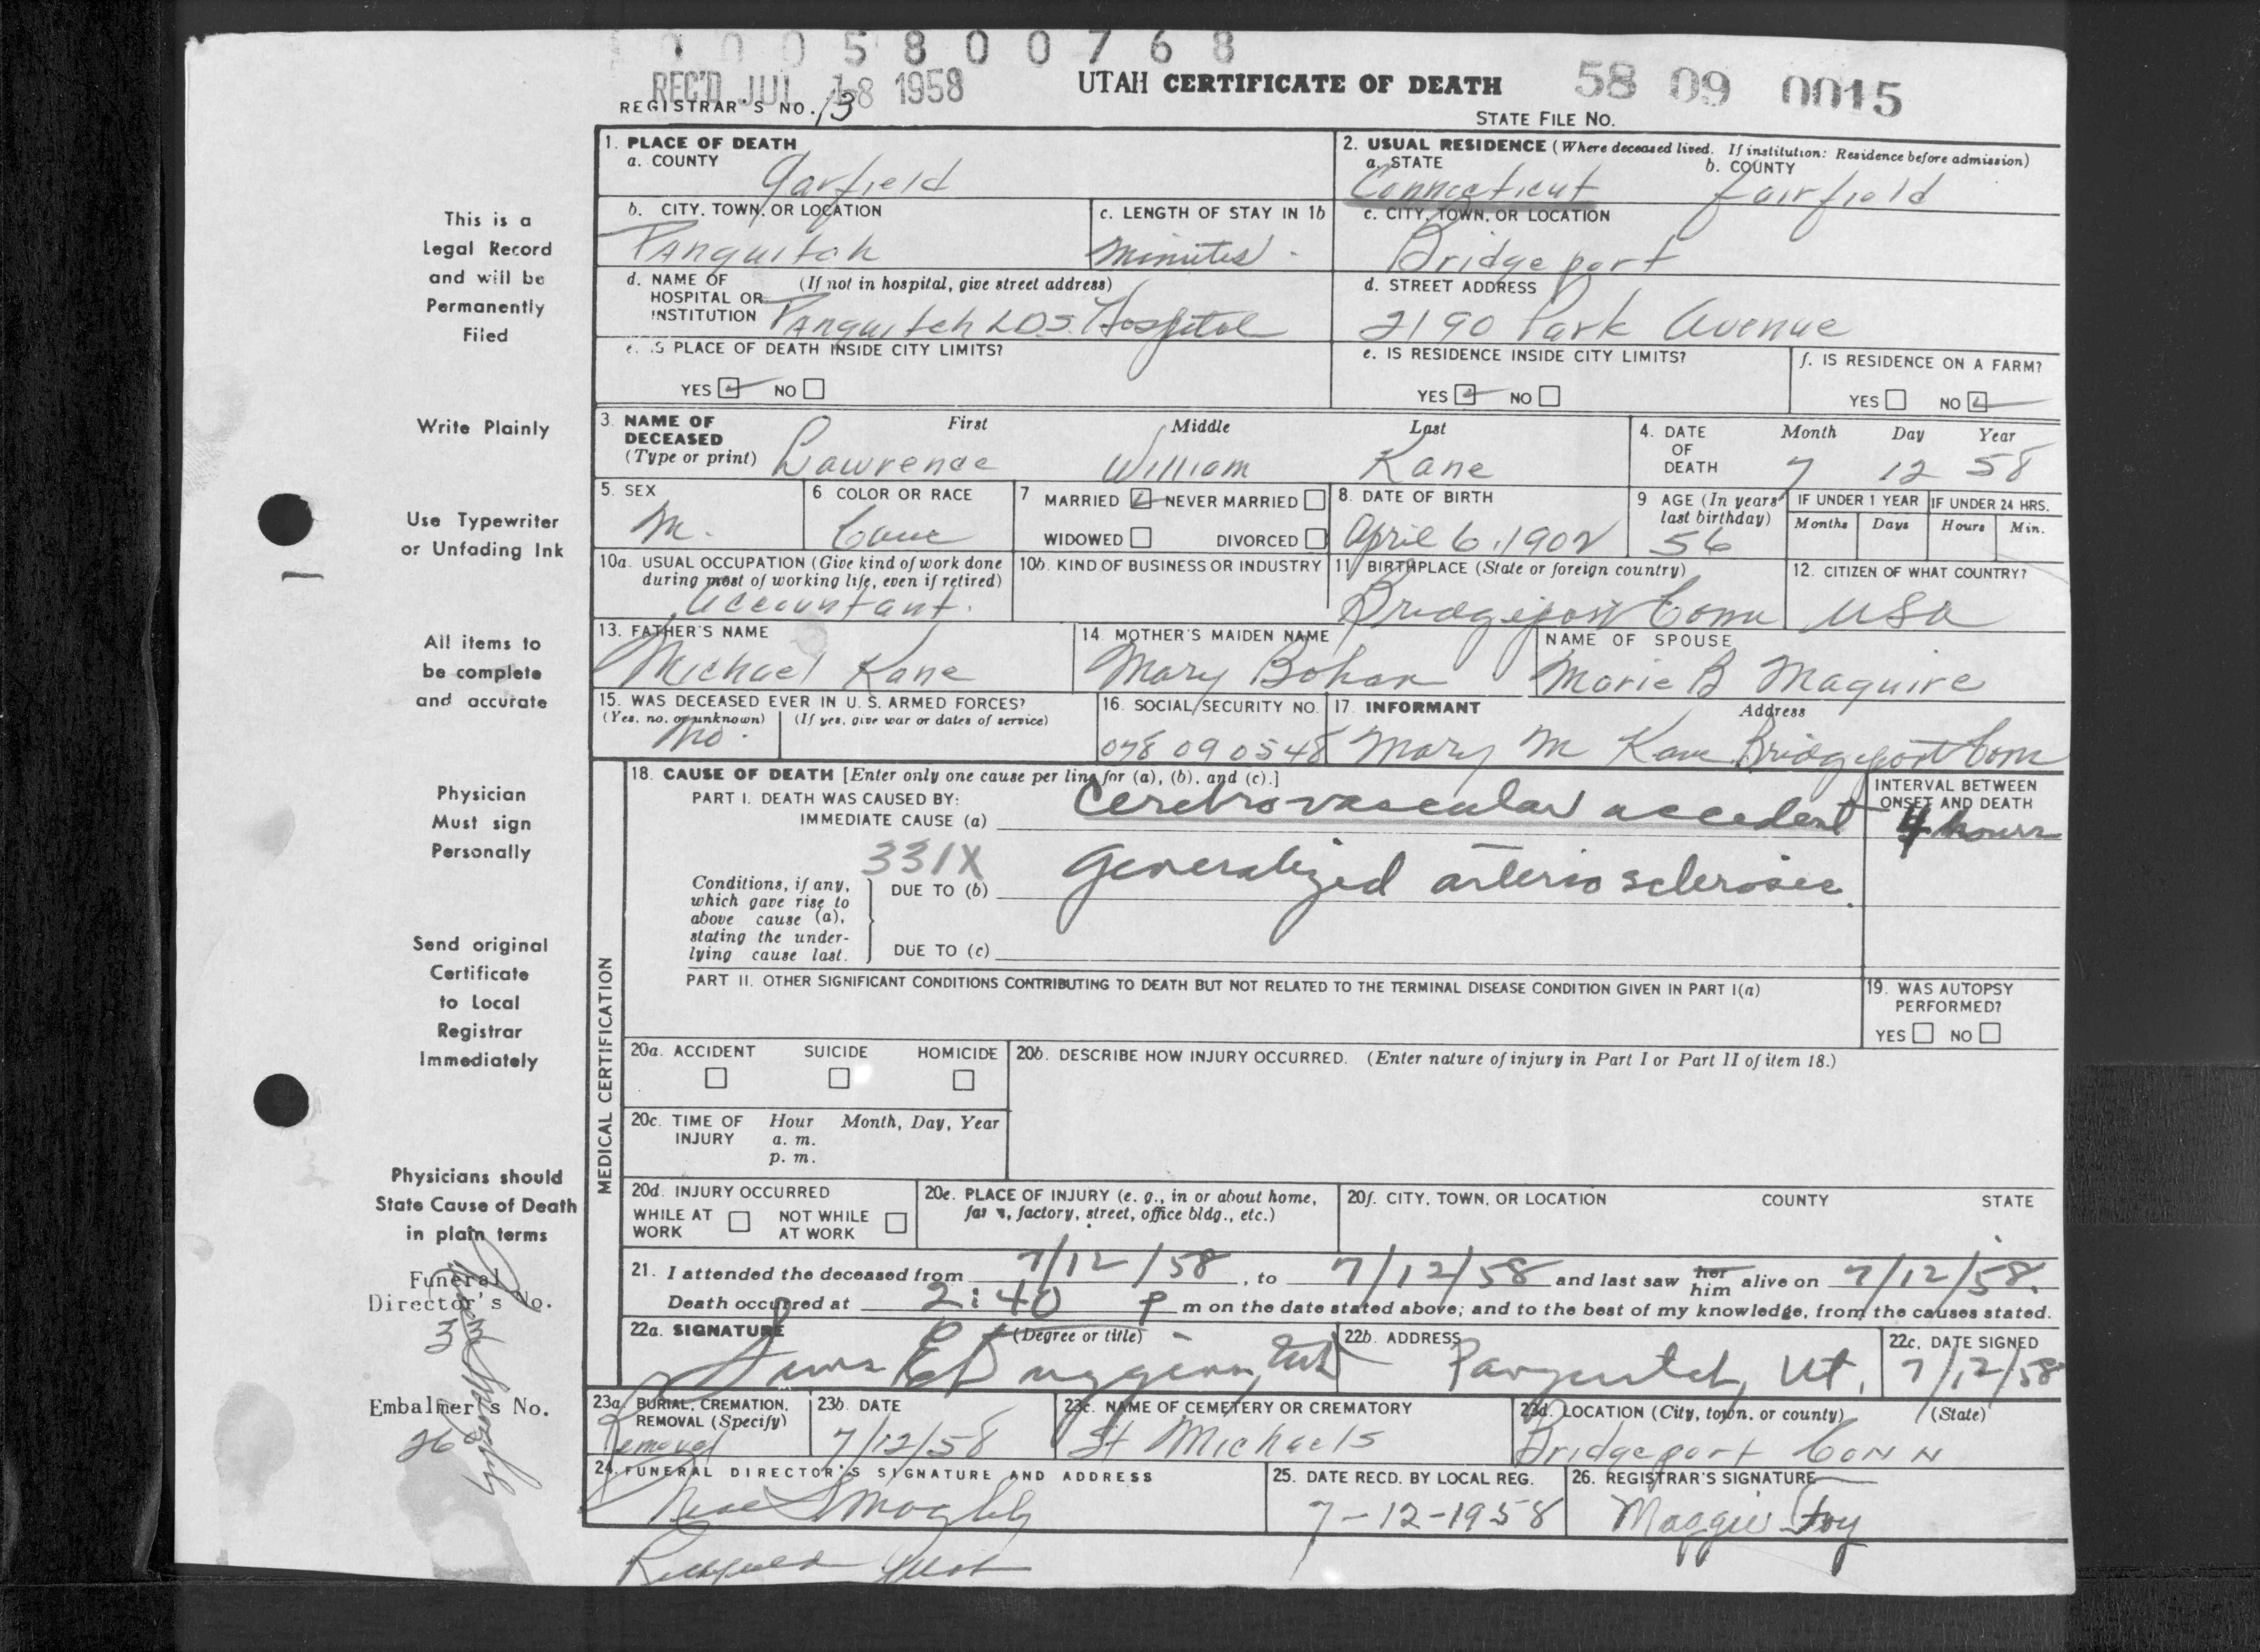 0 0 0 5 8 0 0 7 6 8
REC'D JUL 18 1958
UTAH CERTIFICATE OF DEATH
58 09 0015
REGISTRAR'S NO. 13
STATE FILE NO.
This is a
Legal Record
and will be
Permanently
Filed
Write Plainly
Use Typewriter
or Unfading Ink
All items to
be complete
and accurate
Physician
Must sign
Personally
Send original
Certificate
to Local
Registrar
Immediately
Physicians should
State Cause of Death
in plain terms
Funeral
Director's No.
3
Embalmer's No.
26
1. PLACE OF DEATH
a. COUNTY Garfield
2. USUAL RESIDENCE (Where deceased lived. If institution: Residence before admission)
a. STATE Connecticut b. COUNTY Fairfield
b. CITY, TOWN, OR LOCATION Panguitch
c. LENGTH OF STAY IN 1b Minutes
c. CITY, TOWN, OR LOCATION Bridgeport
d. NAME OF HOSPITAL OR INSTITUTION (If not in hospital, give street address) Panguitch L.D.S. Hospital
d. STREET ADDRESS 2190 Park Avenue
e. IS PLACE OF DEATH INSIDE CITY LIMITS?
YES NO
e. IS RESIDENCE INSIDE CITY LIMITS?
YES NO
f. IS RESIDENCE ON A FARM?
YES NO
3. NAME OF DECEASED (Type or print) First Middle Last
Lawrence William Kane
4. DATE OF DEATH Month Day Year
7 12 58
5. SEX M.
6 COLOR OR RACE Cauc
7 MARRIED NEVER MARRIED
WIDOWED DIVORCED
8. DATE OF BIRTH April 6, 1902
9 AGE (In years last birthday) 56
IF UNDER 1 YEAR Months Days
IF UNDER 24 HRS. Hours Min.
10a. USUAL OCCUPATION (Give kind of work done during most of working life, even if retired) Accountant.
10b. KIND OF BUSINESS OR INDUSTRY
11. BIRTHPLACE (State or foreign country) Bridgeport Conn
12. CITIZEN OF WHAT COUNTRY? USA
13. FATHER'S NAME Michael Kane
14. MOTHER'S MAIDEN NAME Mary Bohan
NAME OF SPOUSE Marie B Maguire
15. WAS DECEASED EVER IN U. S. ARMED FORCES?
(Yes, no, or unknown) (If yes, give war or dates of service)
no.
16. SOCIAL SECURITY NO. 048 09 0548
17. INFORMANT Address
Mary M Kane Bridgeport Conn
MEDICAL CERTIFICATION
18. CAUSE OF DEATH [Enter only one cause per line for (a), (b), and (c).]
PART I. DEATH WAS CAUSED BY:
IMMEDIATE CAUSE (a) Cerebrovascular accedent
INTERVAL BETWEEN ONSET AND DEATH
4 hours
331X
Conditions, if any, which gave rise to above cause (a), stating the underlying cause last.
DUE TO (b) Generalized arteriosclerosis.
DUE TO (c)
PART II. OTHER SIGNIFICANT CONDITIONS CONTRIBUTING TO DEATH BUT NOT RELATED TO THE TERMINAL DISEASE CONDITION GIVEN IN PART I(a)
19. WAS AUTOPSY PERFORMED?
YES NO
20a. ACCIDENT SUICIDE HOMICIDE
20b. DESCRIBE HOW INJURY OCCURRED. (Enter nature of injury in Part I or Part II of item 18.)
20c. TIME OF INJURY Hour Month, Day, Year
a. m.
p. m.
20d. INJURY OCCURRED
WHILE AT WORK NOT WHILE AT WORK
20e. PLACE OF INJURY (e. g., in or about home, farm, factory, street, office bldg., etc.)
20f. CITY, TOWN, OR LOCATION COUNTY STATE
21. I attended the deceased from 7/12/58, to 7/12/58 and last saw her him alive on 7/12/58.
Death occurred at 2:40 P m on the date stated above; and to the best of my knowledge, from the causes stated.
22a. SIGNATURE (Degree or title)
22b. ADDRESS Panguitch, Ut.
22c. DATE SIGNED 7/12/58
23a. BURIAL, CREMATION, REMOVAL (Specify) Removal
23b. DATE 7/12/58
23c. NAME OF CEMETERY OR CREMATORY St Michaels
23d. LOCATION (City, town, or county) (State)
Bridgeport CONN
24. FUNERAL DIRECTOR'S SIGNATURE AND ADDRESS
25. DATE RECD. BY LOCAL REG. 7-12-1958
26. REGISTRAR'S SIGNATURE Maggie Foy